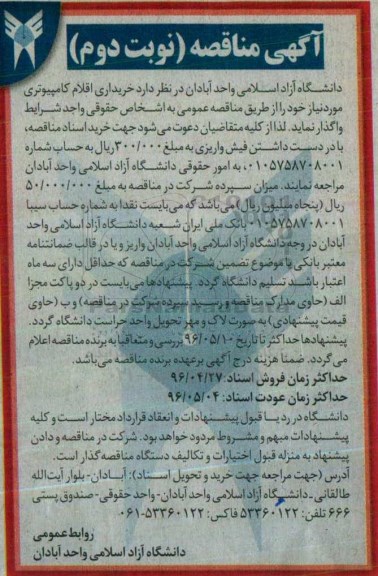 آگهی مناقصه (نوبت دوم)
دانشگاه آزاد اسلامی واحد آبادان در نظر دارد خریداری اقلام کامپیوتری
موردنیاز خود را از طریق مناقصه عمومی به اشخاص حقوقی واجد شرایط
واگذار نماید. لذا از کلیه متقاضیان دعوت می شود جهت خرید اسناد مناقصه،
با در دست داشتن فیش واریزی به مبلغ ۳۰۰/۰۰۰ ریال به حساب شماره
۰۱۰۵۷۵۸۷۰۸۰۰۱، به امور حقوقی دانشگاه آزاد اسلامی واحد آبادان
مراجعه نمایند. میزان سپرده شرکت در مناقصه به مبلغ ۵۰/۰۰۰/۰۰۰
ریال (پنجاه میلیون ریال) می باشد که می بایست نقدا به شماره حساب سیبا
۰۱۰۵۷۵۸۷۰۸۰۰۱ بانک ملی ایران شعبه دانشگاه آزاد اسلامی واحد
آبادان در وجه دانشگاه آزاد اسلامی واحد آبادان واریز و یا در قالب ضمانتنامه
معتبر بانکی با موضوع تضمین شرکت در مناقصه که حداقل دارای سه ماه
اعتبار باشد تسلیم دانشگاه گردد. پیشنهادها می بایست در دو پاکت مجزا
الف (حاوی مدارک مناقصه و رسید سپرده شرکت در مناقصه) و ب (حاوی
قیمت پیشنهادی) به صورت لاک و مهر تحویل واحد حراست دانشگاه گردد.
پیشنهادها حداکثر تا تاریخ ۹۶/۰۵/۱۰ بررسی و متعاقبا به برنده مناقصه اعلام
می گردد. ضمنا هزینه درج آگهی بر عهده برنده مناقصه می باشد.
حداکثر زمان فروش اسناد: ۹۶/۰۴/۲۷
حداکثر زمان عودت اسناد: ۹۶/۰۵/۰۴
دانشگاه در رد یا قبول پیشنهادات و انعقاد قرارداد مختار است و کلیه
پیشنهادات مبهم و مشروط مردود خواهد بود. شرکت در مناقصه و دادن
پیشنهاد به منزله قبول اختیارات و تکالیف دستگاه مناقصه گذار است.
آدرس (جهت مراجعه جهت خرید و تحویل اسناد): آبادان- بلوار آیت الله
طالقانی - دانشگاه آزاد اسلامی واحد آبادان- واحد حقوقی- صندوق پستی
۶۶۶ تلفن: ۵۳۳۶۰۱۲۲ فاکس: ۵۳۳۶۰۱۲۲-۰۶۱
روابط عمومی
دانشگاه آزاد اسلامی واحد آبادان